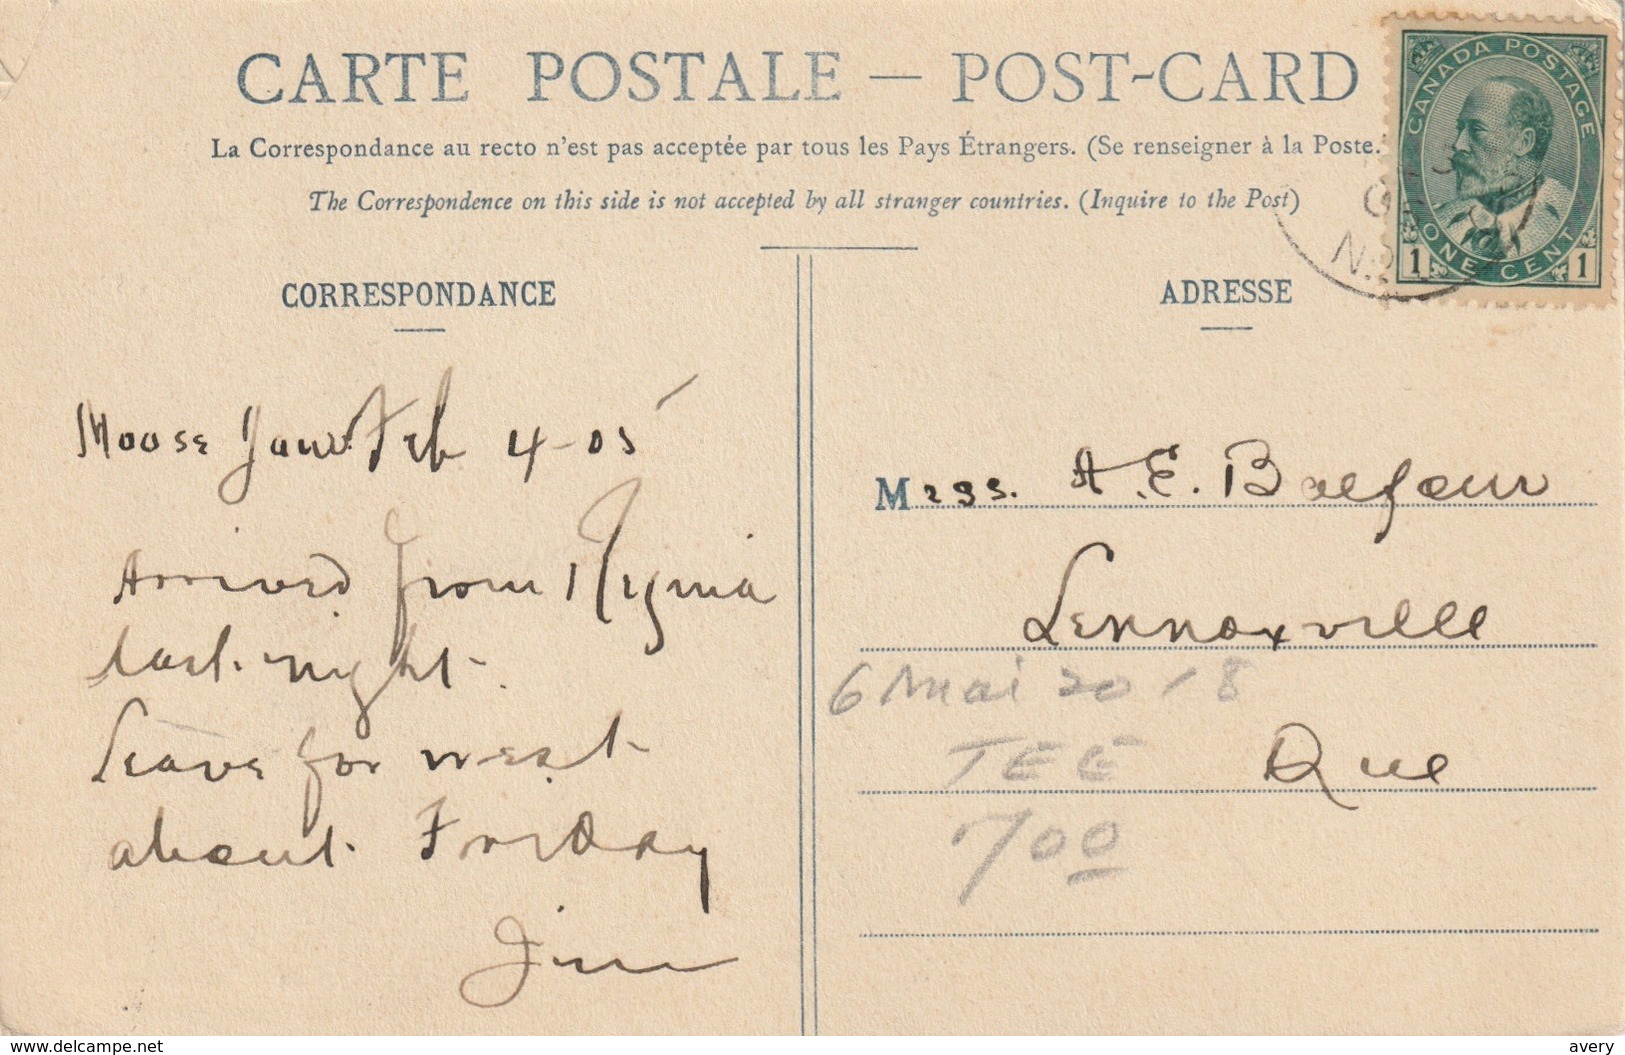 CARTE POSTALE — POST-CARD
La Correspondance au recto n'est pas acceptée par tous les Pays Étrangers. (Se renseigner à la Poste.
The Correspondence on this side is not accepted by all stranger countries. (Inquire to the Post)
CANADA POSTAGE
1 ONE CENT 1
CORRESPONDANCE
Moose Jaw Feb 4-05
Arrived from Regina
last night.
Leave for west
about Friday
Jim
ADRESSE
Mrss. A.E. Balfour
Lennoxville
Que
6 Mai 2018
TEE
700
www.delcampe.net
avery